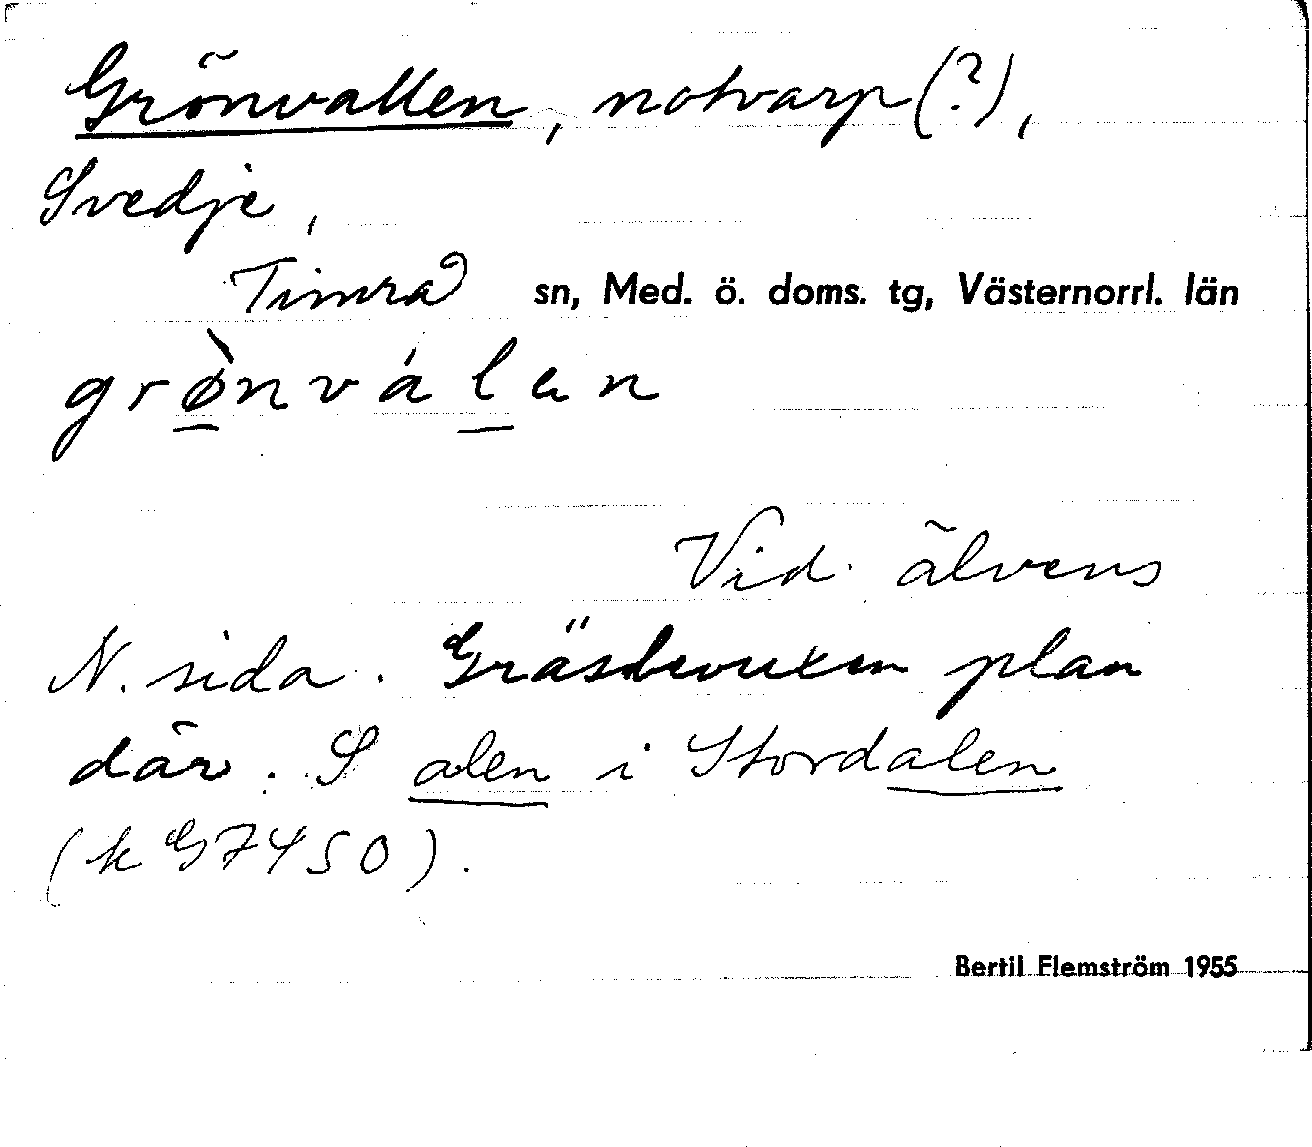 Grönvallen, notvarp (?),
Svedje,
Timrå sn, Med. ö. doms. tg, Västernorrl. län
grø̀nválan
Vid älvens
N. sida. Gräsbevuxen plan
där. S alen i Stordalen
(k G7450).
Bertil Flemström 1955